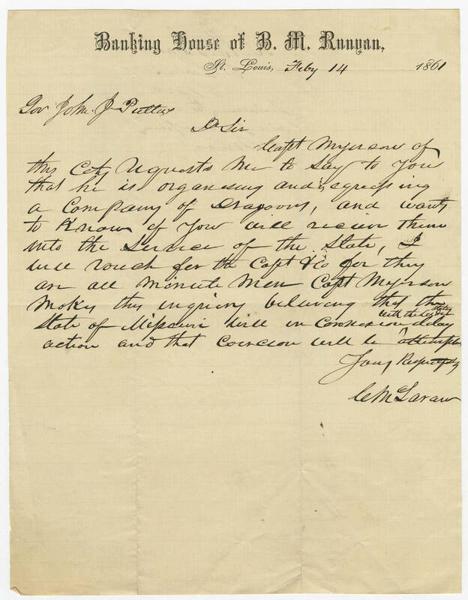 Banking House of B. M. Runyan,
St. Louis, Feby 14 1861
Gov John J Pettus
Dr Sir
Capt Myerson of
this City requests me to say to you
that he is organising and equiping
a Company of Dragoons, and wants
to know if you will receive them
into the Service of the State, I
will vouch for the Capt & Co for they
are all minute men Capt Myerson
makes this inquiry believing that the
State of Missouri will in Convention delay
action and that Coercion will be attempted
Yours Respectfully
C McLaran